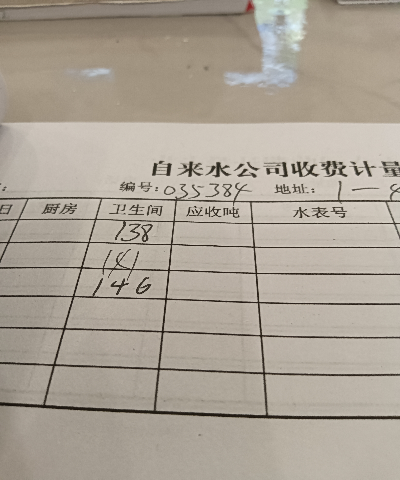 自来水公司收费计量
编号: 035384 地址: 1—4
日 厨房 卫生间 应收吨 水表号
138
141
146